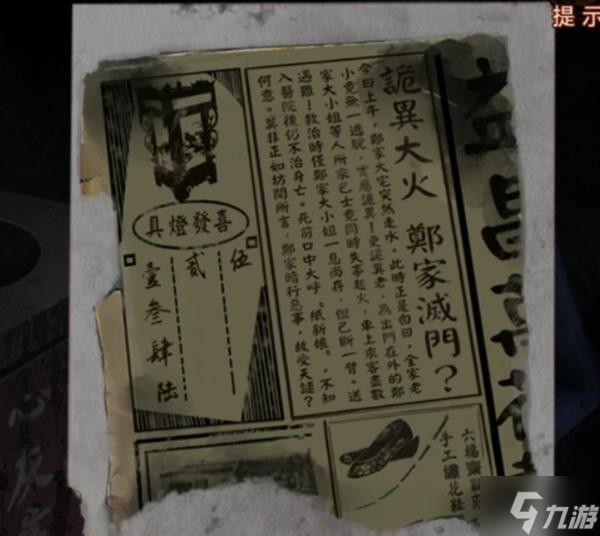 提示
益昌
詭異大火 鄭家滅門？
今日上午，鄭家大宅突然走水。此時正是白日，全家老
小竟無一逃脫，實屬詭異！更詭異者，為出門在外的鄭
家大小姐等人所乘巴士竟同時失事起火，車上乘客盡數
遇難！救治時僅鄭家大小姐一息尚存，但已斷一臂。送
入醫院後仍不治身亡。死前口中大呼「紙新娘」，不知
何意。莫非正如坊間所言，鄭家暗行惡事，故受天譴？
喜發燈具
伍
貳
壹叁肆陸
六福齋鞋
手工繡花鞋
心
九游